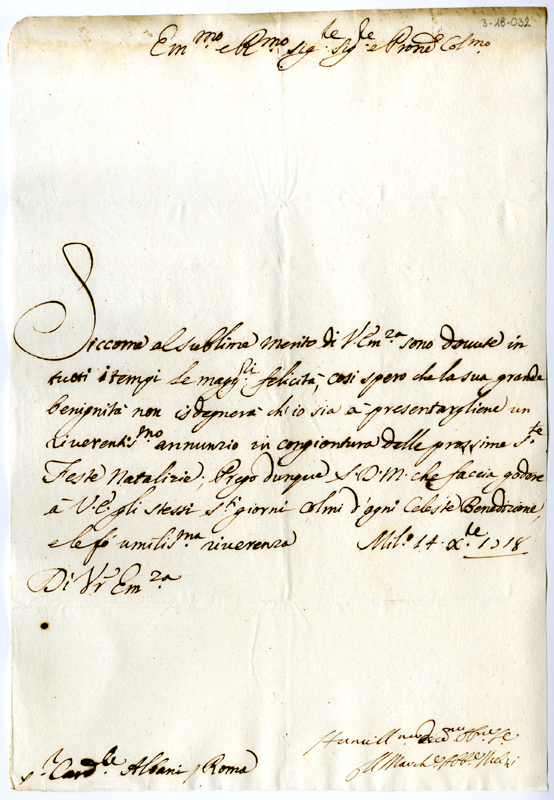 3-18-032
Em.mo e R.mo Sig.re Sig.re e Prone Colmo
Siccome al sublime merito di V. Em.za sono dovute in
tutti i tempi le magg.ri felicità, così spero che la sua grande
benignità non isdegnerà ch'io sia a presentargliene un
riverentis.mo annunzio in congiontura delle prossime S.te
Feste Natalizie; Prego dunque S. D. M. che faccia godere
à V. E. gli stessi S.ti giorni colmi d'ogni Celeste Benedizione,
e le fò umilis.ma riverenza Mil.o 14 X.bre 1718
Di V.ra Em.za
S.r Card.le Albani Roma